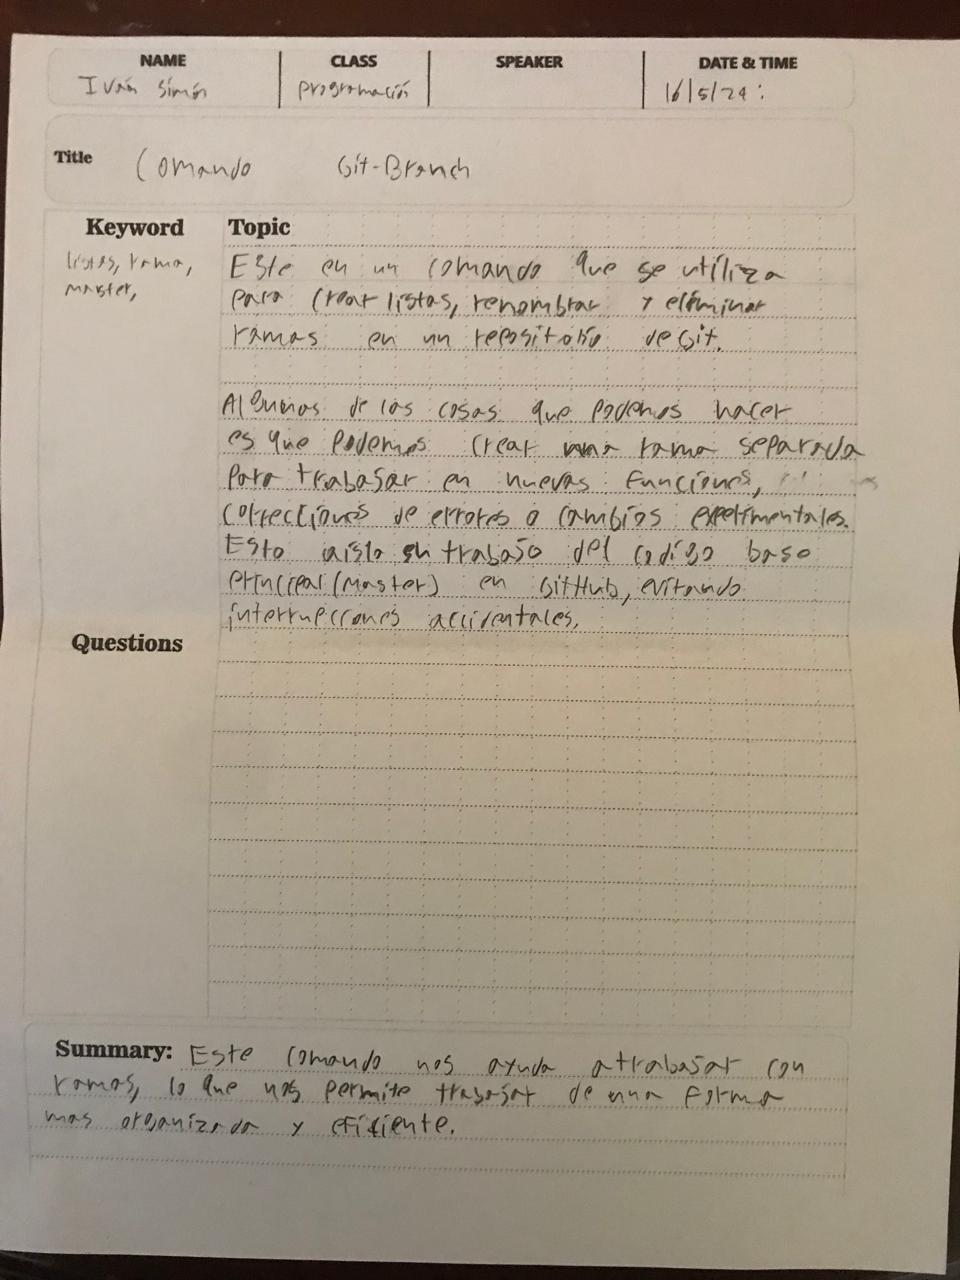 NAME CLASS SPEAKER DATE & TIME
Iván Simón programación 16/5/24:
Title Comando Git-Branch
Keyword
listas, rama,
master,
Topic
Este en un comando que se utiliza
para crear listas, renombrar y eliminar
ramas en un repositorio de Git.
Algunas de las cosas que podemos hacer
es que podemos crear una rama separada
para trabajar en nuevas funciones,
correcciones de errores o cambios experimentales.
Esto aísla en trabajo del codigo base
principal (master) en GitHub, evitando
interrupciones accidentales.
Questions
Summary: Este comando nos ayuda a trabajar con
ramas, lo que nos permite trabajar de una forma
mas organizada y eficiente.